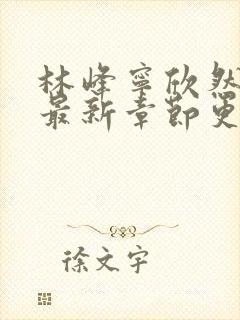 林峰寧欣然
最新章節更
徐文宇